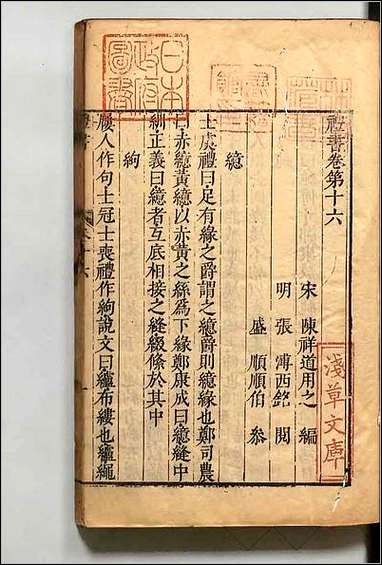 禮書卷第十六
宋 陳祥道用之 編
明 張溥西銘 閱
盛順順伯 叅
繶
士虞禮曰足有緣之爵謂之繶爵則繶緣也鄭司農
曰赤繶黃繶以赤黃之絲為下緣鄭康成曰繶縫中
紃正義曰繶者互底相接之縫綴絛於其中
絇
屨人作句士冠士喪禮作絇說文曰纑布縷也纑繩
日本
政府
圖書
淺草文庫